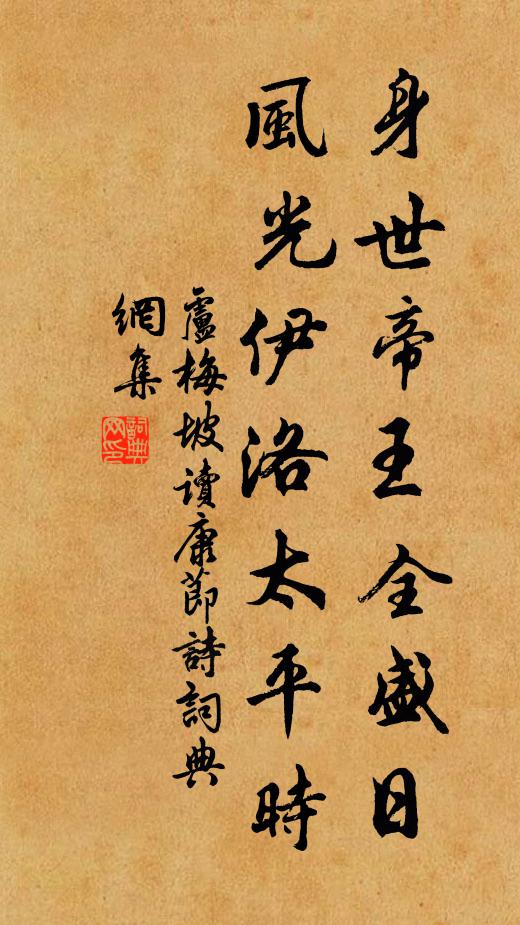 身世帝王全盛日
風光伊洛太平時
盧梅坡讀康節詩詞典
網集
詞典
网印